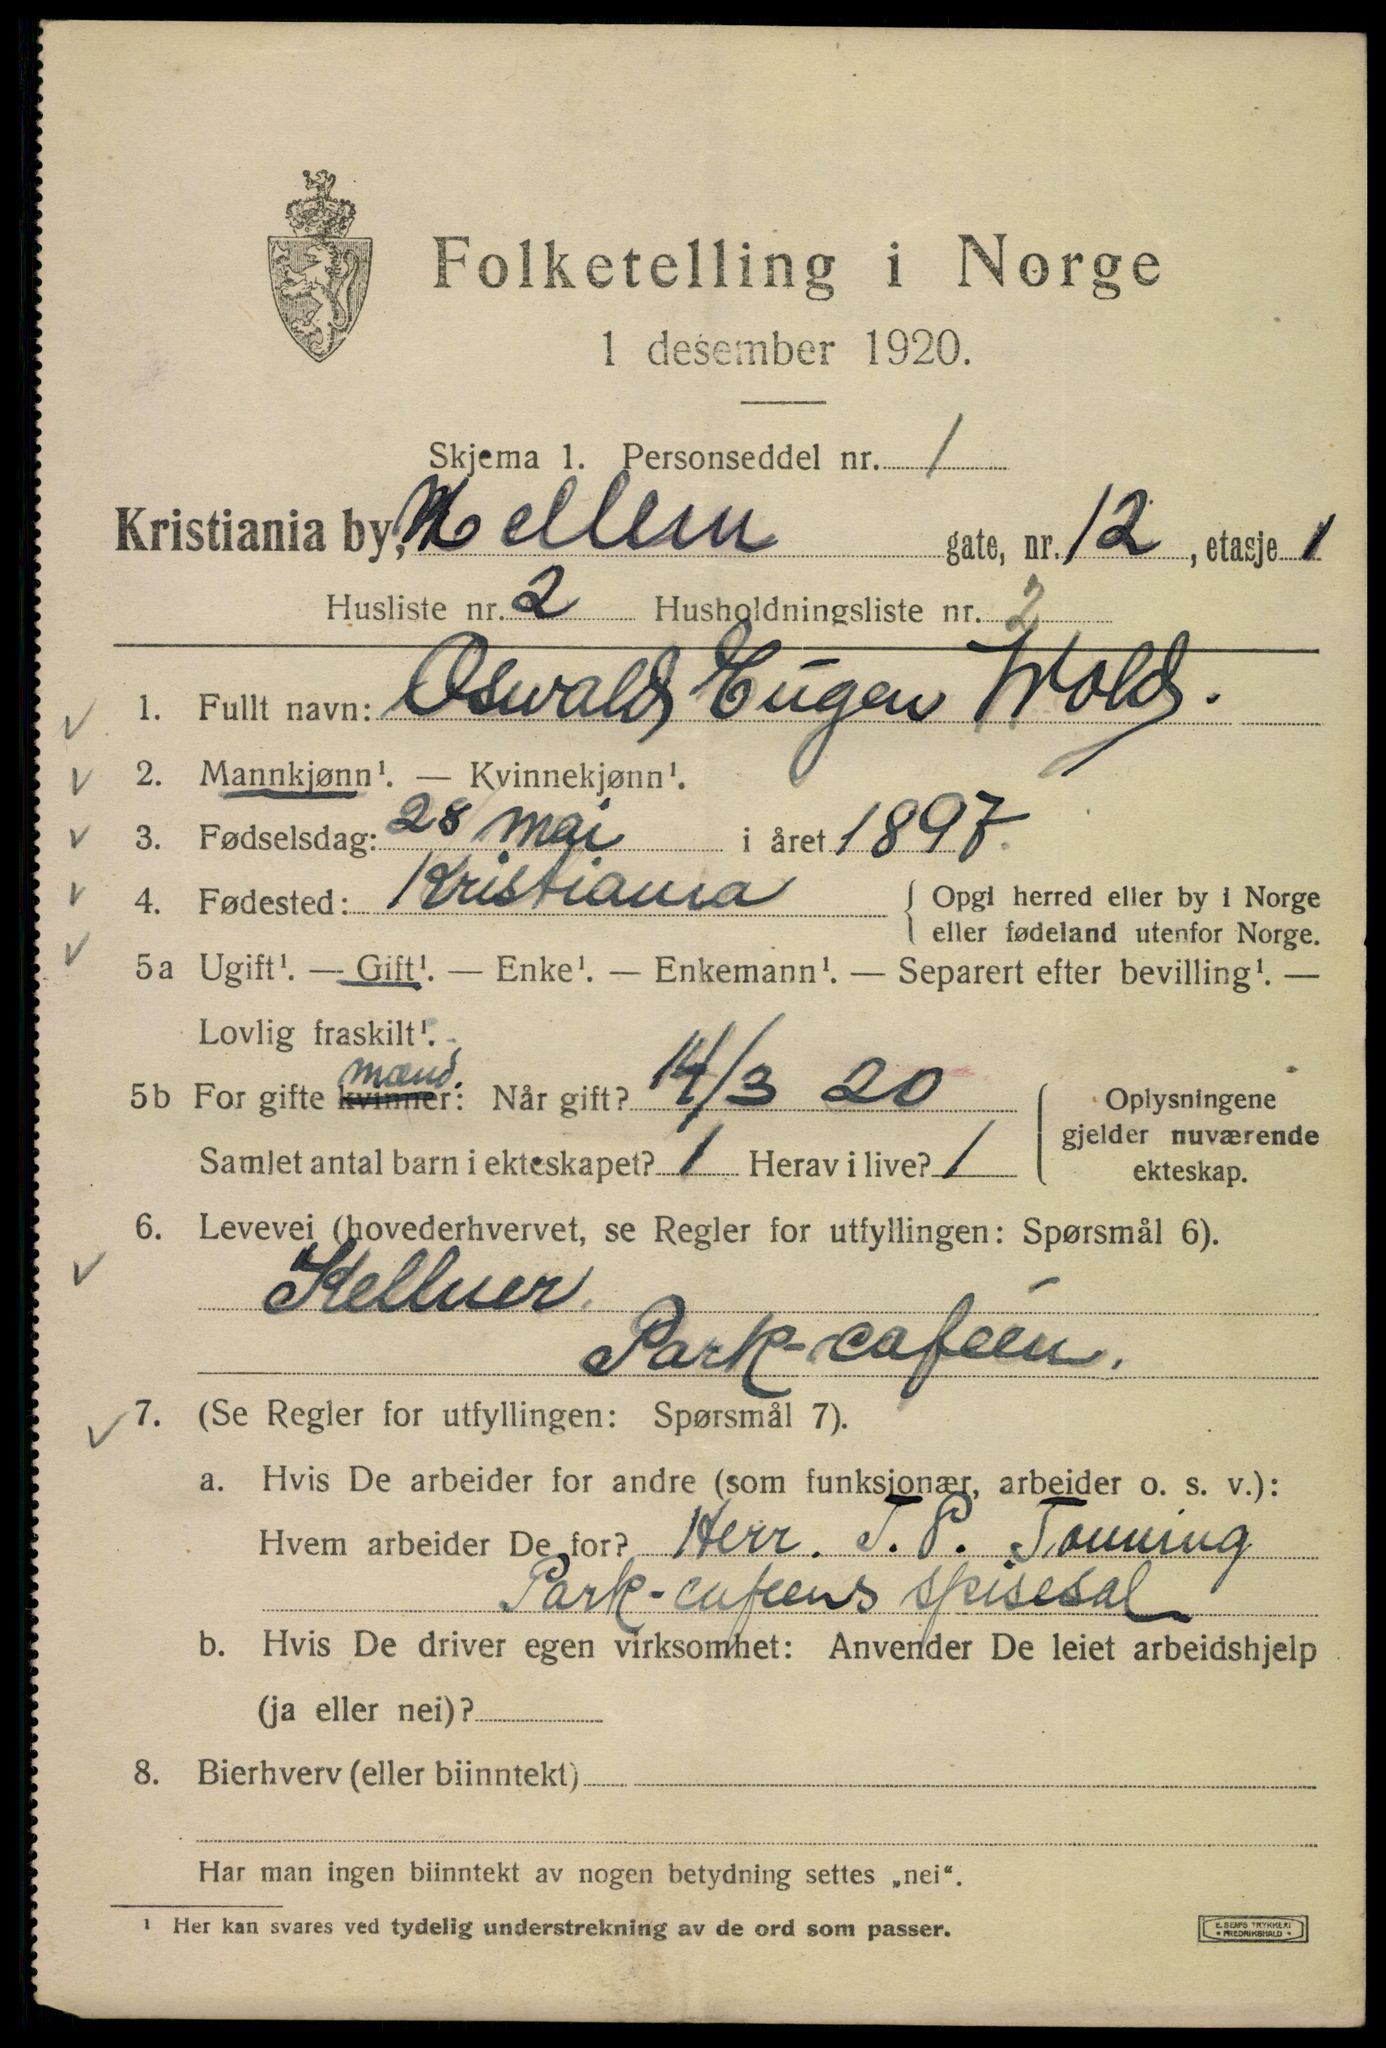 Folketelling i Norge
1 desember 1920.
Skjema 1. Personseddel nr. 1
Kristiania by, Hellem gate, nr. 12, etasje 1
Husliste nr. 2 Husholdningsliste nr. 2
1. Fullt navn: Oswald Eugen Wold.
2. Mannkjønn¹. — Kvinnekjønn¹.
3. Fødselsdag: 28 mai i året 1897.
4. Fødested: Kristiania { Opgi herred eller by i Norge
eller fødeland utenfor Norge.
5a Ugift¹. — Gift¹. — Enke¹. — Enkemann¹. — Separert efter bevilling¹. —
Lovlig fraskilt¹.
mænd.
5b For gifte kvinner: Når gift? 14/3 20 { Oplysningene
gjelder nuværende
Samlet antal barn i ekteskapet? 1 Herav i live? 1
ekteskap.
6. Levevei (hovederhvervet, se Regler for utfyllingen: Spørsmål 6).
Kellner.
Park-cafeén.
7. (Se Regler for utfyllingen: Spørsmål 7).
a. Hvis De arbeider for andre (som funksjonær, arbeider o. s. v.):
Hvem arbeider De for? Herr. T. P. Tonning
Park-cafeens spisesal
b. Hvis De driver egen virksomhet: Anvender De leiet arbeidshjelp
(ja eller nei)?
8. Bierhverv (eller biinntekt)
Har man ingen biinntekt av nogen betydning settes „nei“.
¹ Her kan svares ved tydelig understrekning av de ord som passer.
E. SEM'S TRYKKERI
• FREDRIKSHALD •